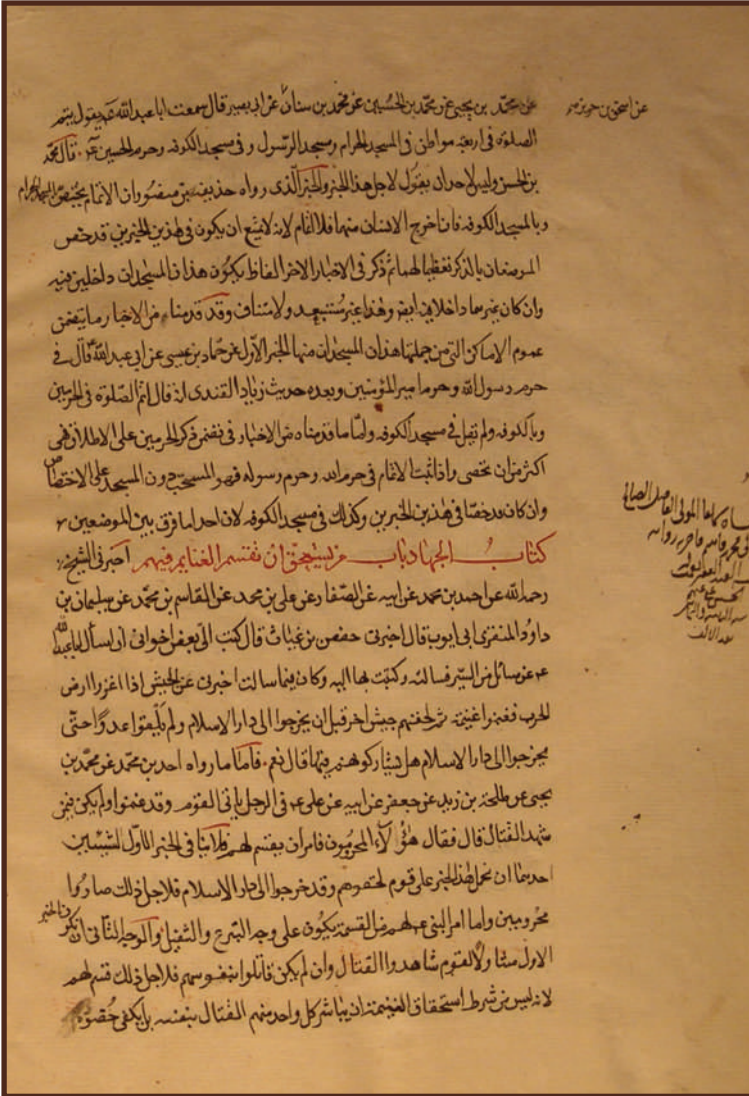 عن محمد بن يحيى عن محمد بن الحسين عن محمد بن سنان عن ابى بصير قال سمعت ابا عبد الله ع يقول يتم
الصلوة فى اربعة مواطن فى المسجد الحرام ومسجد الرسول وفى مسجد الكوفه وحرم الحسين ع قال محمد
بن الحسن وليس لاحد ان يقول لاجل هذا الخبر والخبر الذى رواه حذيفة بن منصور ان الاتمام يختص بالمسجد الحرام
وبالمسجد الكوفه فاذا خرج الانسان منها فلا اتمام لانه لا يمتنع ان يكون فى هذين الخبرين قد خص
الموضعان بالذكر تعظيما لهما ثم ذكر فى الاخبار الاخر الفاظ يكون هذان المسجدان داخلين فيه
وان كان غيرهما داخلا فيه ايضا وهذا غير مستبعد ولا متناف وقد قدمنا من الاخبار ما يتضمن
عموم الاماكن التى من جملتها هذان المسجدان منها الخبر الاول عن حماد بن عيسى عن ابى عبد الله ع قال فى
حرم رسول الله وحرم امير المؤمنين وبعده حديث زياد القندى انه قال اتم الصلوة فى الحرمين
وبالكوفه ولم تقل فى مسجد الكوفه ولما ما قدمناه من الاخبار فى تضمن ذكر الحرمين على الاطلاق فهى
اكثر من ان تحصى واذا ثبت الاتمام فى حرم الله وحرم رسوله فهو المستحب دون المسجد على الاختصاص
وان كان قد خصا فى هذين الخبرين وكذلك فى مسجد الكوفه لان احدا ما فرق بين الموضعين
كتاب الجهاد باب من يستحق ان تقسم الغنايم فيهم اخبرنى الشيخ
رحمه الله عن احمد بن محمد عن ابيه عن الصفار عن على بن محمد عن القاسم بن محمد عن سليمان بن
داود المنقرى ابى ايوب قال اخبرنى حفص بن غياث قال كتب الى بعض اخوانى ان اسأل ابا عبد الله
ع عن مسائل من السير فسالته وكتبت بها اليه وكان فيما سالت اخبرنى عن الجيش اذا اغزوا ارض
الحرب فغنموا غنيمة ثم لحقهم جيش اخر قبل ان يخرجوا الى دار الاسلام ولم يلقوا عدوا حتى
يخرجوا الى دار الاسلام هل يشاركونهم فيها قال نعم فاما ما رواه احمد بن محمد عن محمد بن
يحيى عن طلحة بن زيد عن جعفر عن ابيه عن على ع فى الرجل ياتى القوم وقد غنموا ولم يكن فيمن
شهد القتال قال فقال هؤلاء المحرومون فامر ان يقسم لهم فلا ينافى الخبر الاول لشيئين
احدهما ان نحمل هذا الخبر على قوم لحقوهم وقد خرجوا الى دار الاسلام فلاجل ذلك صاروا
محرومين واما امر النبى ع لهم من القسمة يكون على وجه التبرع والتنفيل والوجه الثانى ان يكون فى الخبر
الاول مثا ولا القوم شاهدوا القتال وان لم يكن قاتلوا بنفوسهم فلاجل ذلك قسم لهم
لانه ليس من شرط استحقاق الغنيمة ان يباشر كل واحد منهم القتال بنفسه بل يكفى حضوره
عن اسحق بن حريز